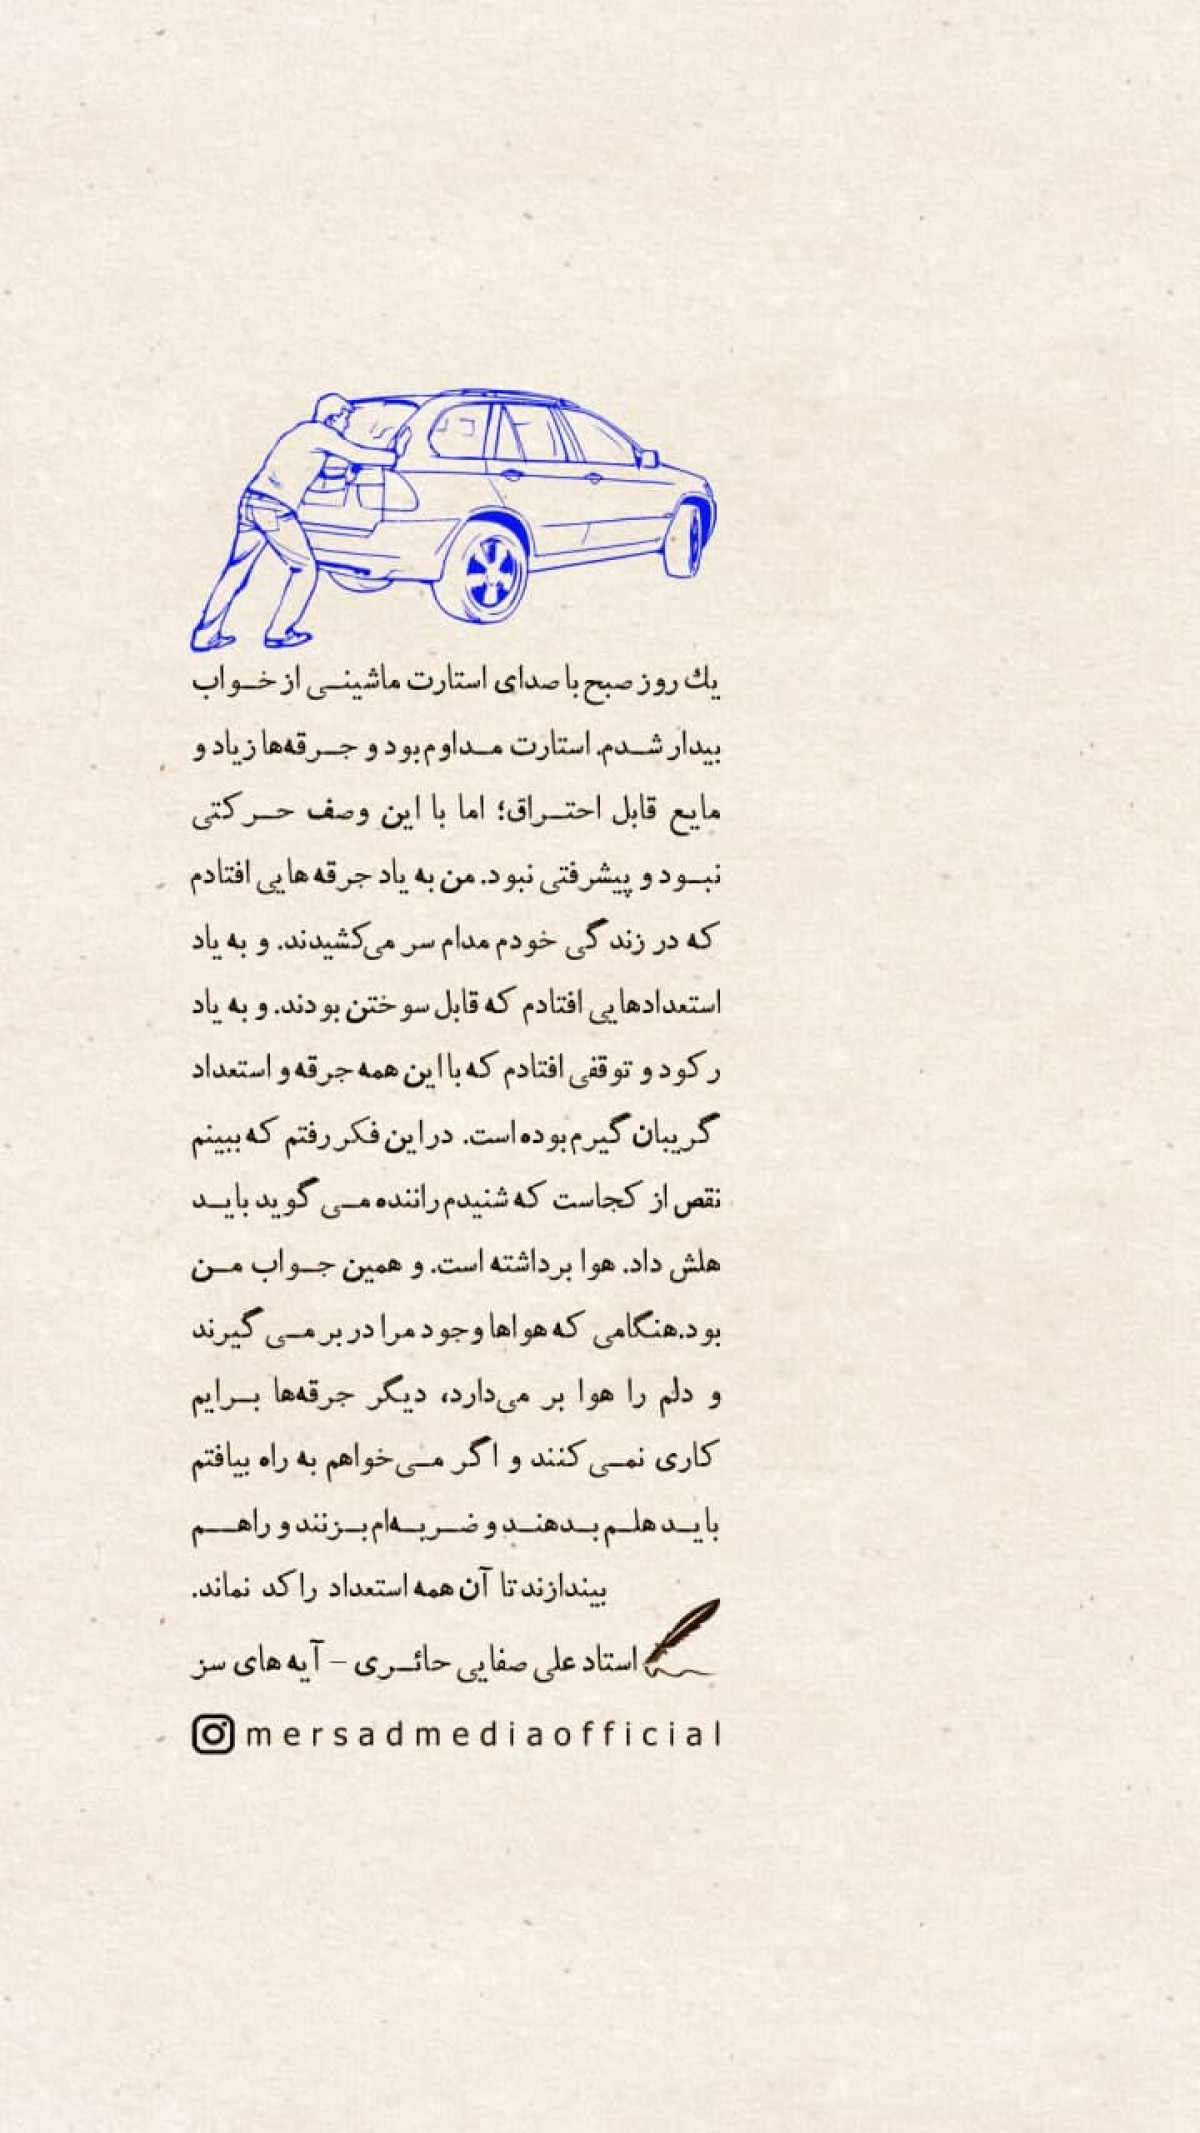 یك روز صبح با صدای استارت ماشینی از خواب
بیدار شدم. استارت مداوم بود و جرقه‌ها زیاد و
مایع قابل احتراق؛ اما با این وصف حرکتی
نبود و پیشرفتی نبود. من به یاد جرقه‌هایی افتادم
که در زندگی خودم مدام سر می‌کشیدند. و به یاد
استعدادهایی افتادم که قابل سوختن بودند. و به یاد
رکود و توقفی افتادم که با این همه جرقه و استعداد
گریبان گیرم بوده است. در این فکر رفتم که ببینم
نقص از کجاست که شنیدم راننده می گوید باید
هلش داد. هوا برداشته است. و همین جواب من
بود. هنگامی که هواها وجود مرا در بر می گیرند
و دلم را هوا بر می‌دارد، دیگر جرقه‌ها برایم
کاری نمی کنند و اگر می‌خواهم به راه بیافتم
باید هلم بدهند و ضربه‌ام بزنند و راهم
بیندازند تا آن همه استعداد راکد نماند.
استاد علی صفایی حائری – آیه های سز
mersadmediaofficial